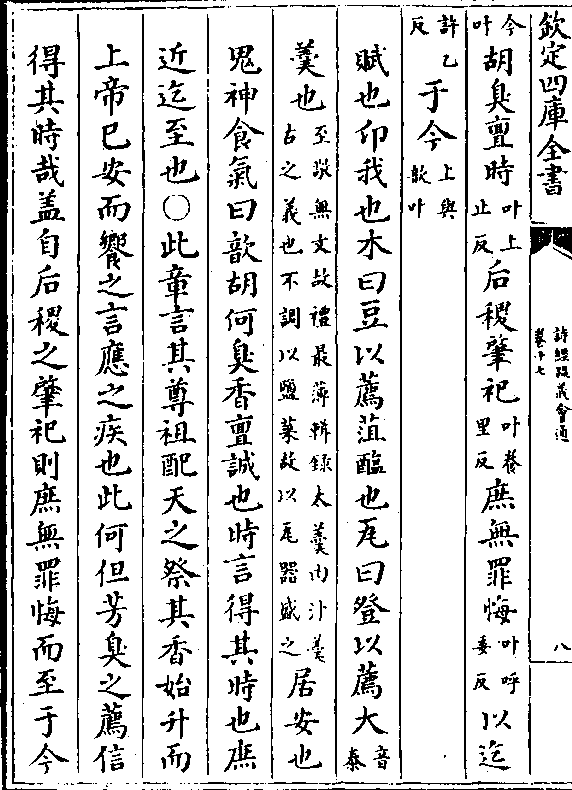 欽定四庫全書
詩經疏義會通
卷十七
八
今叶胡臭亶時叶上止反后稷肇祀叶養里反庶無罪悔叶呼委反以迄
許乙反于今上與歆叶
賦也卬我也木曰豆以薦菹醢也瓦曰登以薦大音泰
羹也至敬無文故禮最薄輯錄太羮肉汁羮古之義也不調以鹽菜故以瓦器盛之居安也
鬼神食氣曰歆胡何臭香亶誠也時言得其時也庶
近迄至也○此章言其尊祖配天之祭其香始升而
上帝已安而饗之言應之疾也此何但芳臭之薦信
得其時哉盖自后稷之肇祀則庶無罪悔而至于今